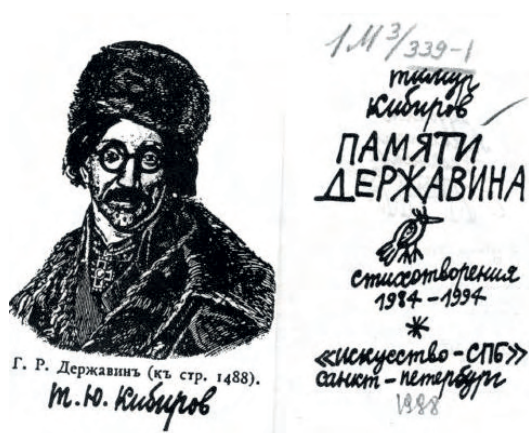 Г. Р. Державинъ (къ стр. 1488).
Т. Ю. Кибиров
1М3/339-1
тимур
Кибиров
ПАМЯТИ
ДЕРЖАВИНА
стихотворения
1984-1994
*
«искусство-СПБ»
санкт-петербург
1998